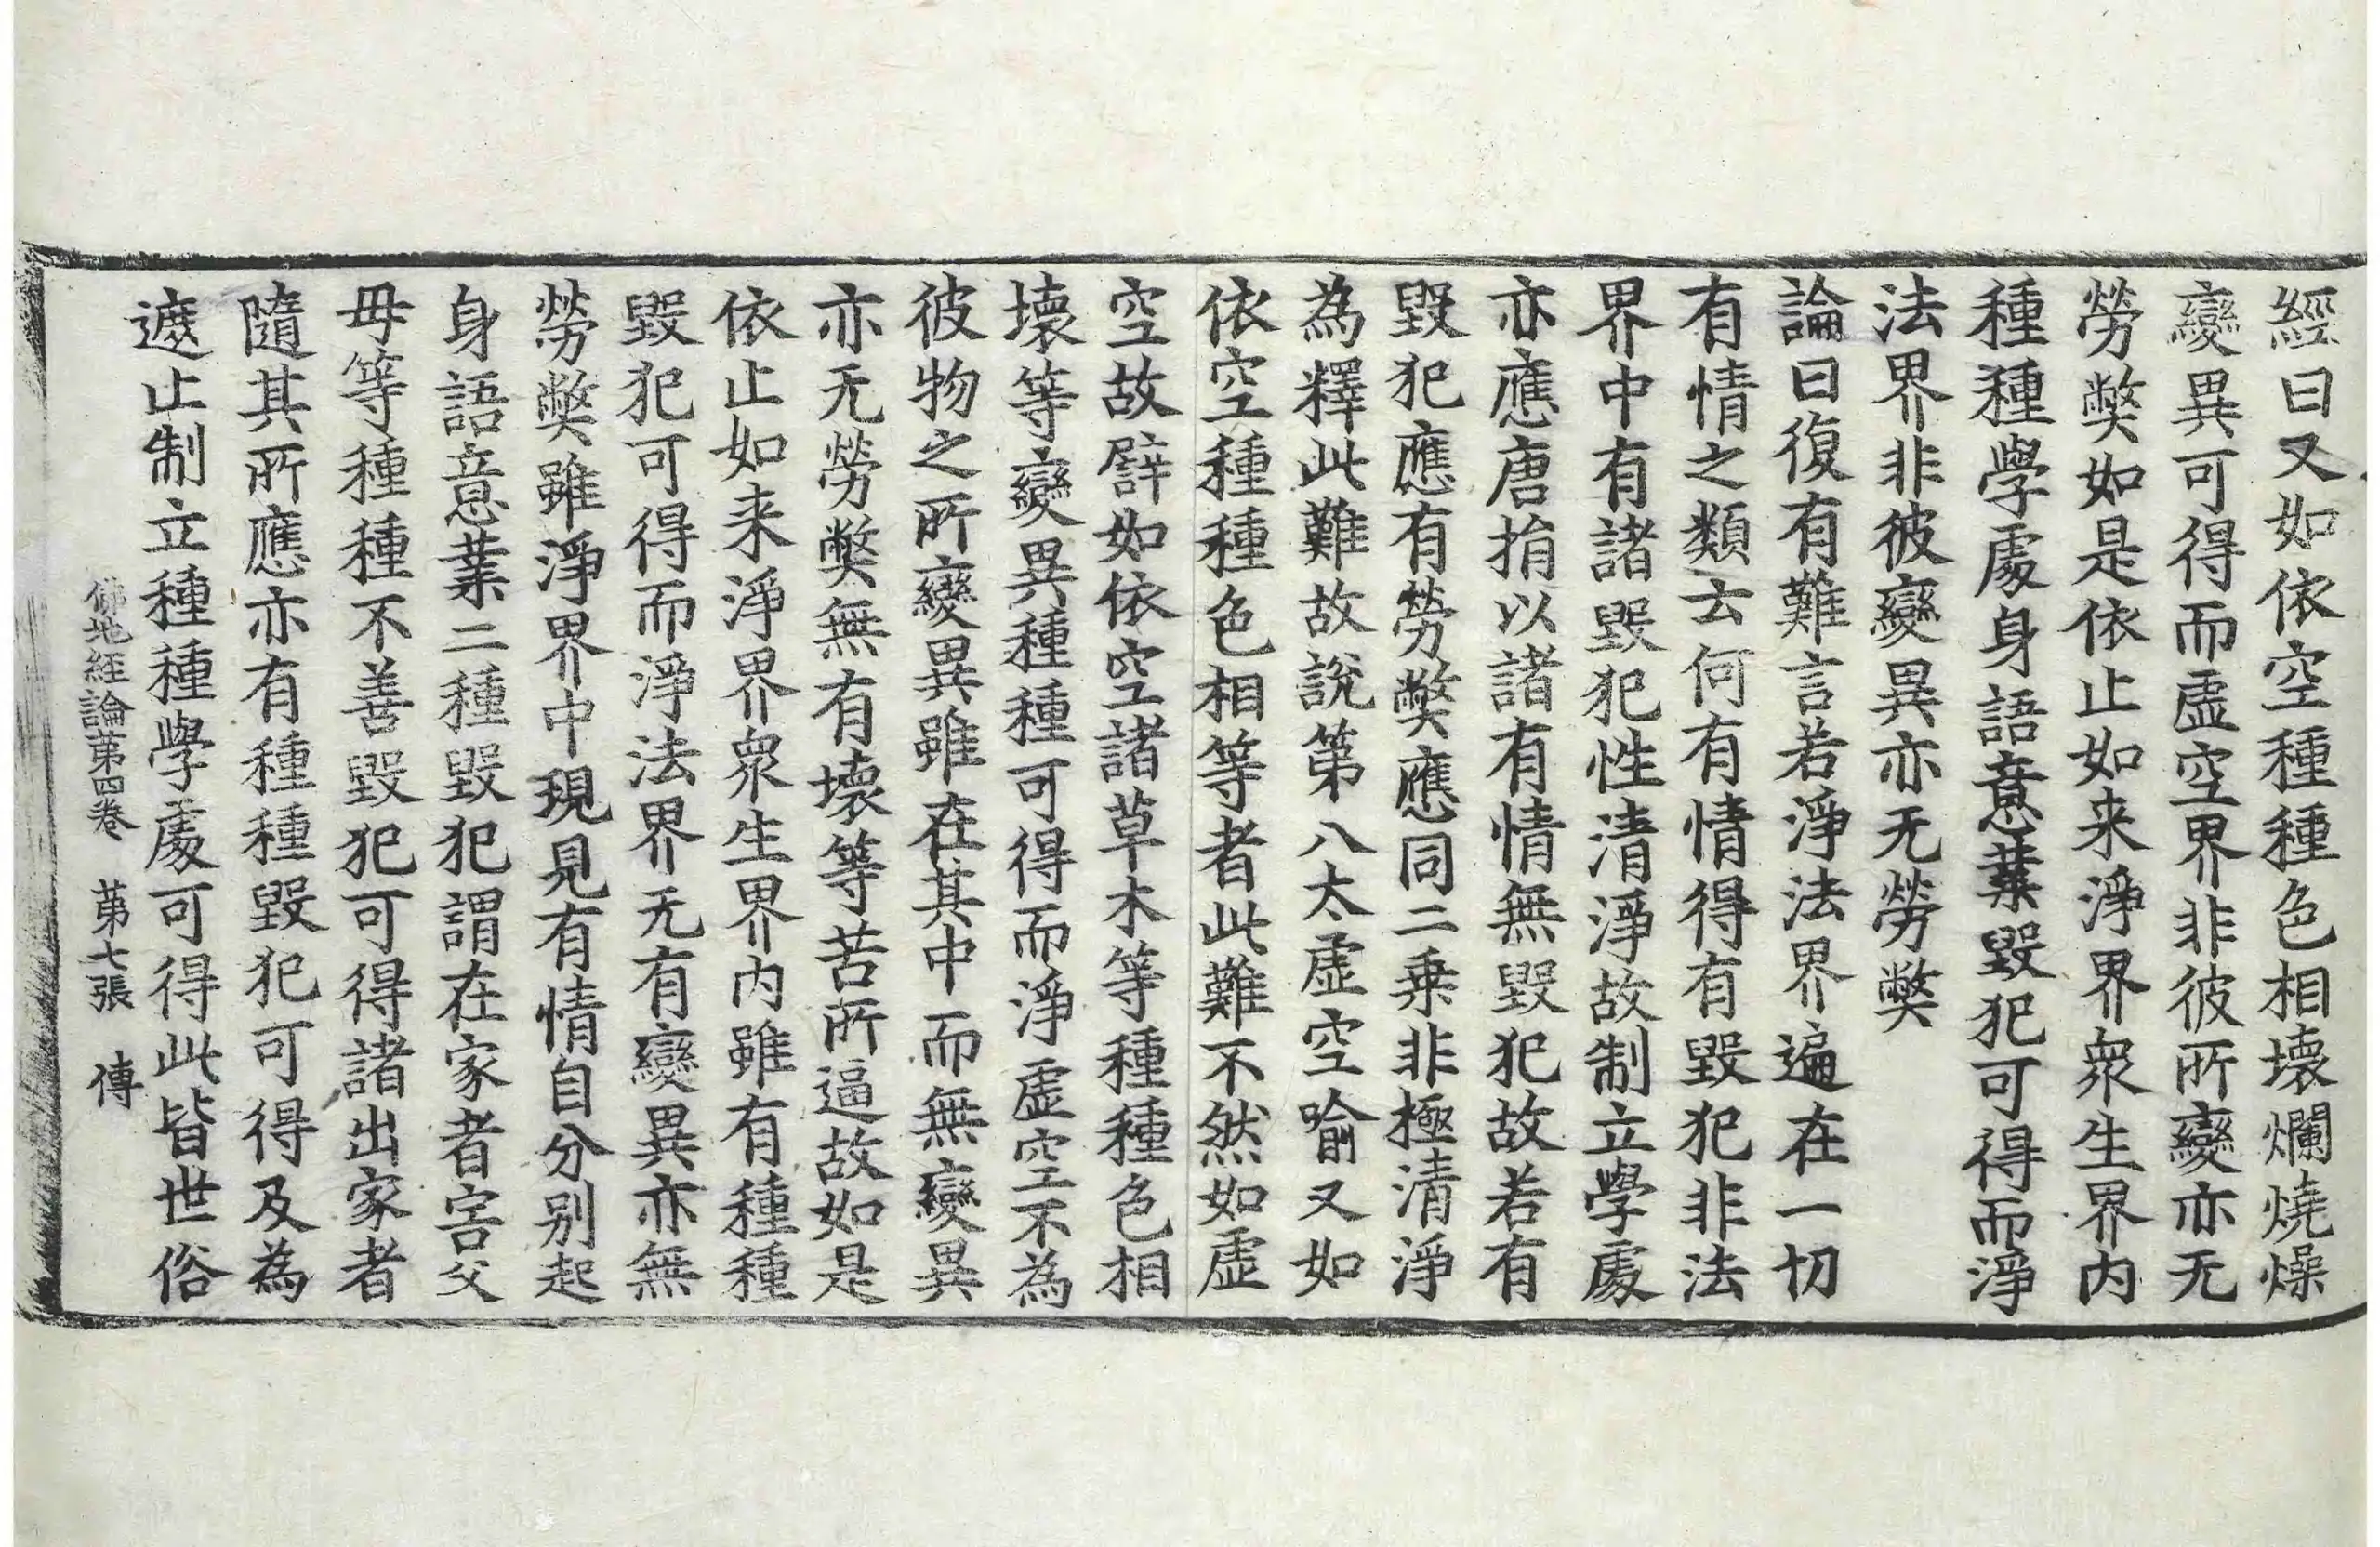 經曰又如依空種種色相壞爛燒燥
變異可得而虛空界非彼所變亦无
勞弊如是依止如来淨界衆生界内
種種學處身語意業毀犯可得而淨
法界非彼變異亦无勞弊
論曰復有難言若淨法界遍在一切
有情之類云何有情得有毀犯非法
界中有諸毀犯性清淨故制立學處
亦應唐捐以諸有情無毀犯故若有
毀犯應有勞弊應同二乗非極清淨
為釋此難故說第八太虛空喻又如
依空種種色相等者此難不然如虛
空故譬如依空諸草木等種種色相
壞等變異種種可得而淨虛空不為
彼物之所變異雖在其中而無變異
亦无勞弊無有壞等苦所逼故如是
依止如来淨界衆生界内雖有種種
毀犯可得而淨法界无有變異亦無
勞弊雖淨界中現見有情自分別起
身語意業二種毀犯謂在家者害父
母等種種不善毀犯可得諸出家者
隨其所應亦有種種毀犯可得及為
遮止制立種種學處可得此皆世俗
佛地經論第四卷　第七張　傳